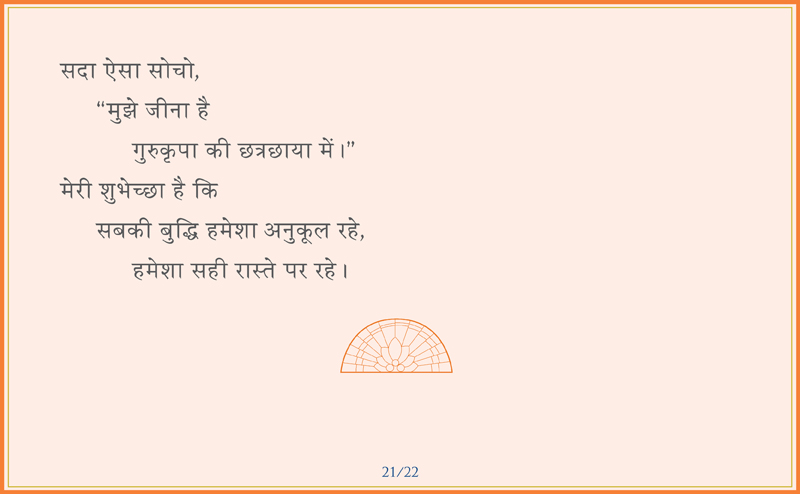 सदा ऐसा सोचो,
“मुझे जीना है
गुरुकृपा की छत्रछाया में।”
मेरी शुभेच्छा है कि
सबकी बुद्धि हमेशा अनुकूल रहे,
हमेशा सही रास्ते पर रहे।
21/22